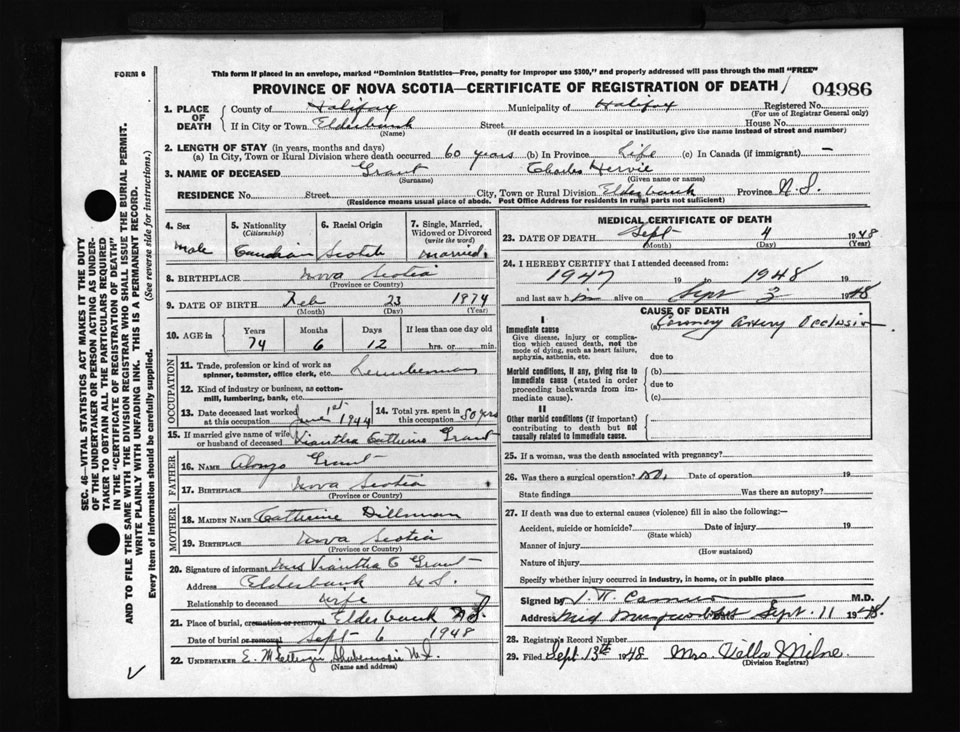 FORM 6
This form if placed in an envelope, marked "Dominion Statistics—Free, penalty for improper use $300," and properly addressed will pass through the mail "FREE"
PROVINCE OF NOVA SCOTIA—CERTIFICATE OF REGISTRATION OF DEATH
04986
1. PLACE OF DEATH
County of Halifax Municipality of Halifax Registered No.
(For use of Registrar General only)
If in City or Town Elderbank Street House No.
(Name) (If death occurred in a hospital or institution, give the name instead of street and number)
2. LENGTH OF STAY (in years, months and days)
(a) In City, Town or Rural Division where death occurred 60 years (b) In Province Life (c) In Canada (if immigrant) —
3. NAME OF DECEASED Grant Charles
(Surname) (Given name or names)
RESIDENCE No. Street City, Town or Rural Division Elderbank Province N.S.
(Residence means usual place of abode. Post Office Address for residents in rural parts not sufficient)
4. Sex
male
5. Nationality (Citizenship)
Canadian
6. Racial Origin
Scotch
7. Single, Married, Widowed or Divorced (write the word)
married.
8. BIRTHPLACE Nova Scotia
(Province or Country)
9. DATE OF BIRTH Feb 23 1974
(Month) (Day) (Year)
10. AGE in
Years Months Days If less than one day old
74 6 12 hrs. or min.
OCCUPATION
11. Trade, profession or kind of work as spinner, teamster, office clerk, etc. Lumberman
12. Kind of industry or business, as cotton-mill, lumbering, bank, etc.
13. Date deceased last worked at this occupation June 1st 1944
14. Total yrs. spent in this occupation 50 yrs
15. If married give name of wife or husband of deceased Viantha Catherine Grant
FATHER
16. NAME Alonzo Grant
17. BIRTHPLACE Nova Scotia
(Province or Country)
MOTHER
18. MAIDEN NAME Catherine Dillman
19. BIRTHPLACE Nova Scotia
(Province or Country)
20. Signature of informant Mrs Viantha C Grant
Address Elderbank N.S.
Relationship to deceased wife
21. Place of burial, cremation or removal Elderbank N.S.
Date of burial or removal Sept 6 1948
22. UNDERTAKER E. Shubenacadie N.S.
(Name and address)
MEDICAL CERTIFICATE OF DEATH
23. DATE OF DEATH Sept 4 1948
(Month) (Day) (Year)
24. I HEREBY CERTIFY that I attended deceased from:
1947 19 to 1948 19
and last saw him alive on Sept 3 1948
CAUSE OF DEATH
I
Immediate cause
Give disease, injury or complication which caused death, not the mode of dying, such as heart failure, asphyxia, asthenia, etc.
(a) Coronary Artery Occlusion
due to
Morbid conditions, if any, giving rise to immediate cause (stated in order proceeding backwards from immediate cause).
(b)
due to
(c)
II
Other morbid conditions (if important) contributing to death but not causally related to immediate cause.
25. If a woman, was the death associated with pregnancy?
26. Was there a surgical operation? No. Date of operation 19
State findings Was there an autopsy?
27. If death was due to external causes (violence) fill in also the following:—
Accident, suicide or homicide? Date of injury 19
(State which)
Manner of injury
(How sustained)
Nature of injury
Specify whether injury occurred in industry, in home, or in public place
Signed by M.D.
Address Mid Sept. 11 1948.
28. Registrar's Record Number
29. Filed Sept. 13th 1948 Mrs. Vella Milne.
(Division Registrar)
SEC. 46—VITAL STATISTICS ACT MAKES IT THE DUTY
OF THE UNDERTAKER OR PERSON ACTING AS UNDER-
TAKER TO OBTAIN ALL THE PARTICULARS REQUIRED
IN THE "CERTIFICATE OF REGISTRATION OF DEATH"
AND TO FILE THE SAME WITH THE DIVISION REGISTRAR WHO SHALL ISSUE THE BURIAL PERMIT.
WRITE PLAINLY WITH UNFADING INK. THIS IS A PERMANENT RECORD.
Every item of information should be carefully supplied. (See reverse side for instructions.)